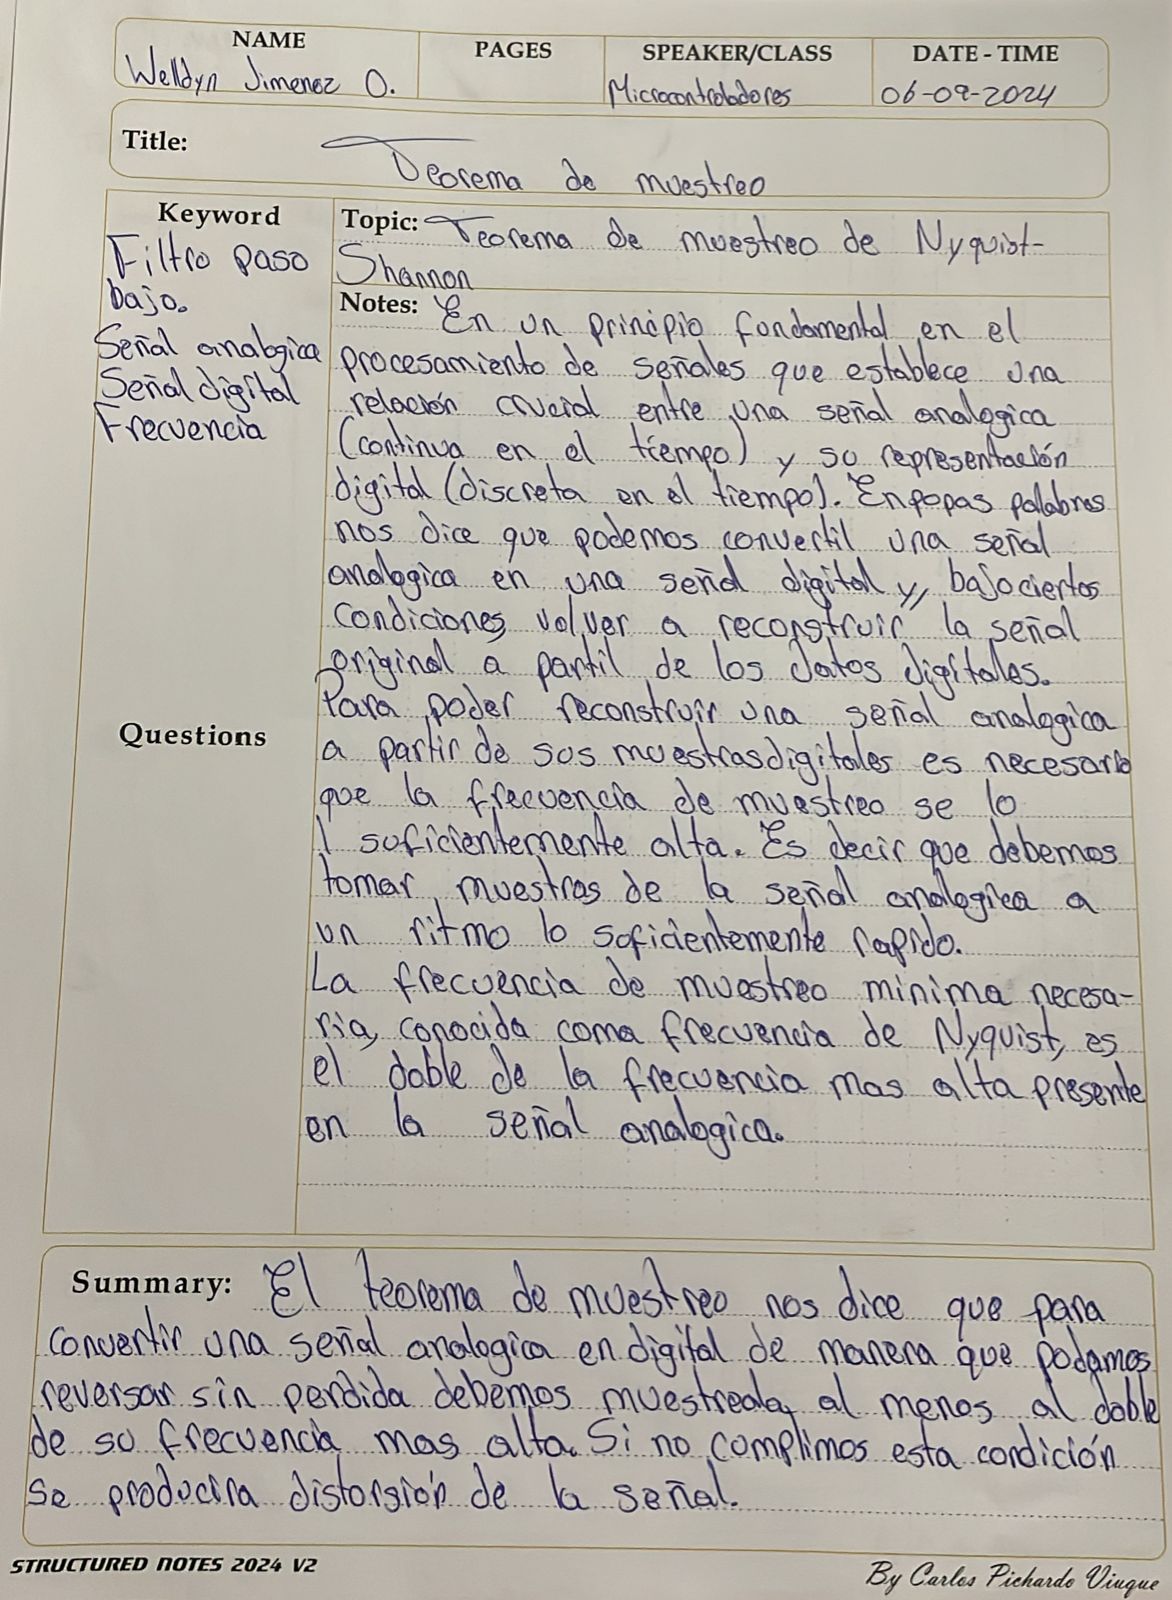 NAME PAGES SPEAKER/CLASS DATE - TIME
Welldyn Jimenez O. Microcontroladores 06-09-2024
Title: Teorema de muestreo
Keyword
Filtro paso
bajo.
Señal analogica
Señal digital
Frecuencia
Questions
Topic: Teorema de muestreo de Nyquist-
Shannon
Notes: En un principio fundamental en el
procesamiento de señales que establece una
relación crucial entre una señal analogica
(continua en el tiempo) y su representación
digital (discreta en el tiempo). En popas palabras
nos dice que podemos convertil una señal
analogica en una señal digital y, bajo ciertos
condiciones volver a reconstruir la señal
original a partil de los datos digitales.
Para poder reconstruir una señal analogica
a partir de sus muestras digitales es necesario
que la frecuencia de muestreo se lo
suficientemente alta. Es decir que debemos
tomar muestras de la señal analogica a
un ritmo lo suficientemente rapido.
La frecuencia de muestreo minima necesa-
ria, conocida coma frecuencia de Nyquist, es
el doble de la frecuencia mas alta presente
en la señal analogica.
Summary: El teorema de muestreo nos dice que para
convertir una señal analogica en digital de manera que podamos
reversar sin perdida debemos al menos al doble
de su frecuencia mas alta. Si no cumplimos esta condición
se producira distorsión de la señal.
STRUCTURED NOTES 2024 V2
By Carlos Pichardo Viuque